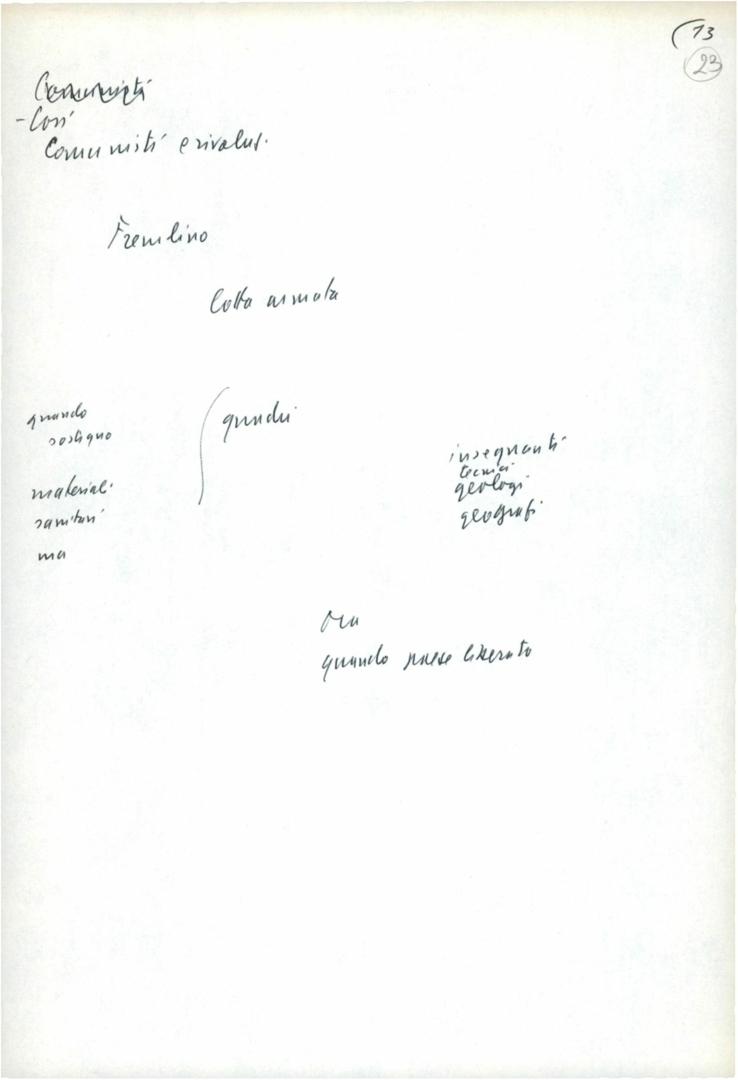 13
23
Comunisti
- Così
Comunisti e rivoluz.
Frelimo
lotta armata
quando
sostegno
materiali
sanitari
ma
quadri
insegnanti
tecnici
geologi
geografi
Ora
quando paese liberato